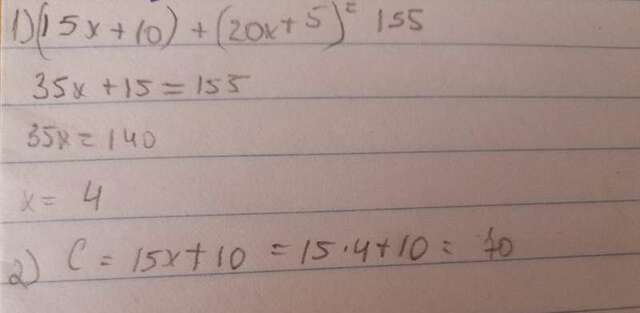 1) (15x+10) + (20x+5) = 155
35x +15 = 155
35x = 140
x = 4
2) C = 15x+10 = 15·4+10 = 70